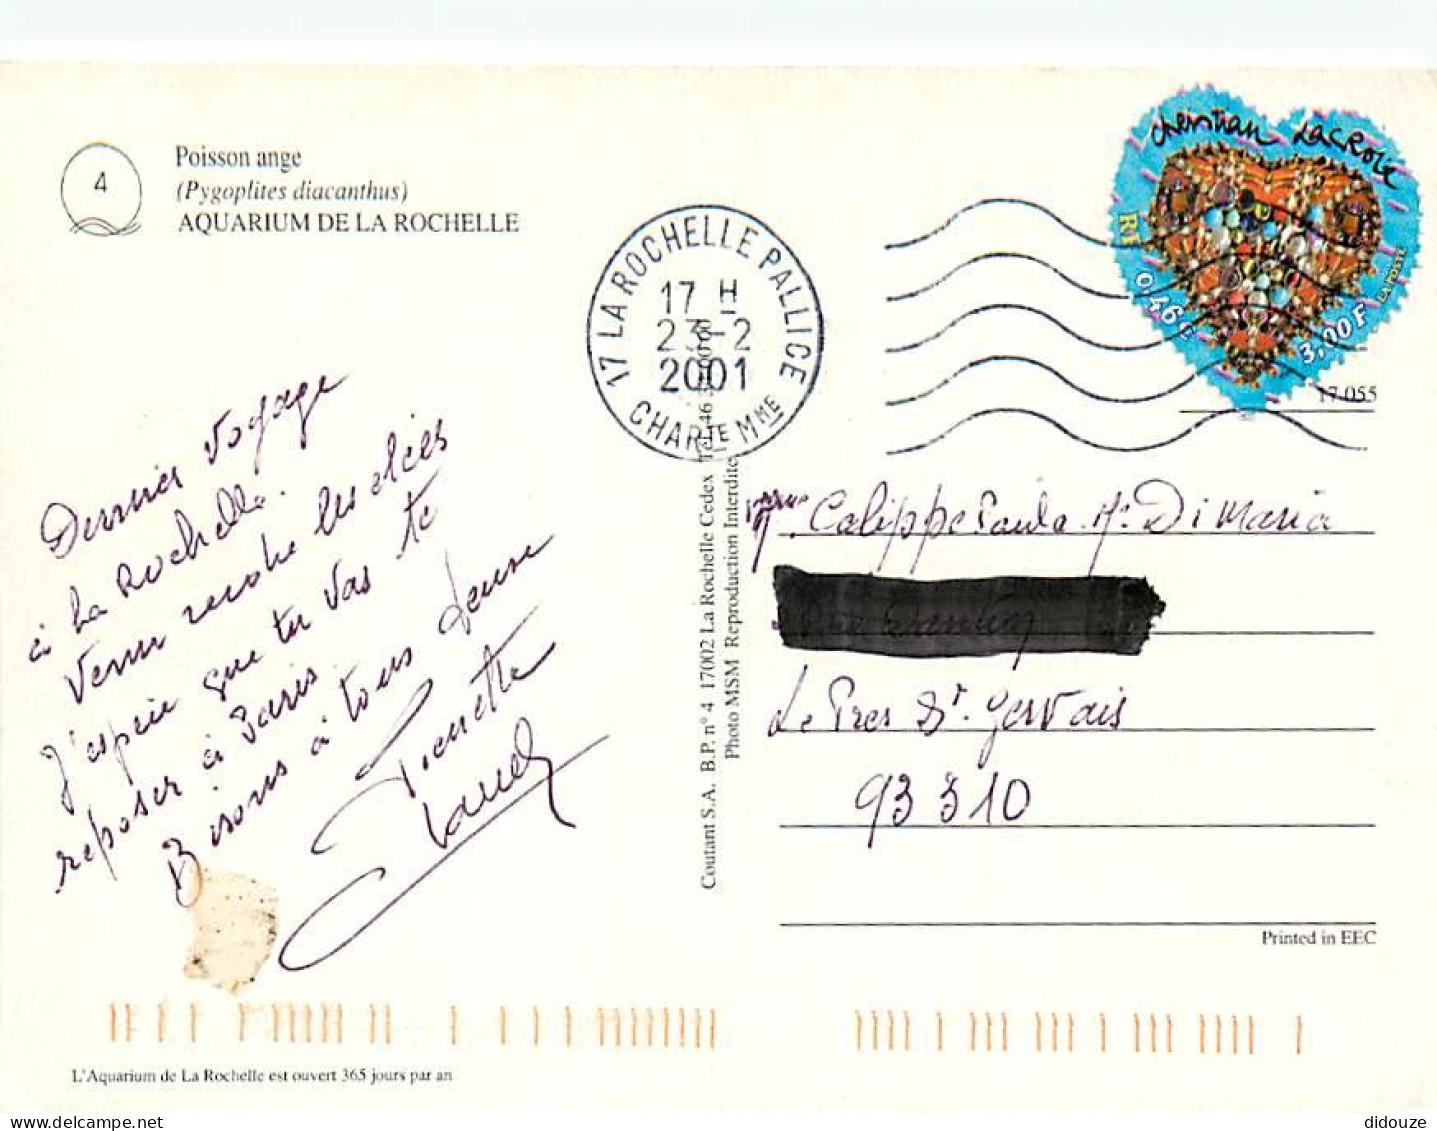 4
Poisson ange
(Pygoplites diacanthus)
AQUARIUM DE LA ROCHELLE
17 LA ROCHELLE PALLICE
17 H
23-2
2001
CHARTE MME
Christian Lacroix
RF
0,46 €
3,00 F
LA POSTE
17 055
Dernier voyage
à La Rochelle.
Venu rendre les clés
J'espère que tu vas te
reposer à Paris.
Bisous à tous
Pierrette
Coutant S.A. B.P. n° 4 17002 La Rochelle Cedex Tél. 46
Photo MSM Reproduction Interdite
Calippe Paula Mr Di Maria
Le Pres St. Gervais
93 310
Printed in EEC
L'Aquarium de La Rochelle est ouvert 365 jours par an
didouze